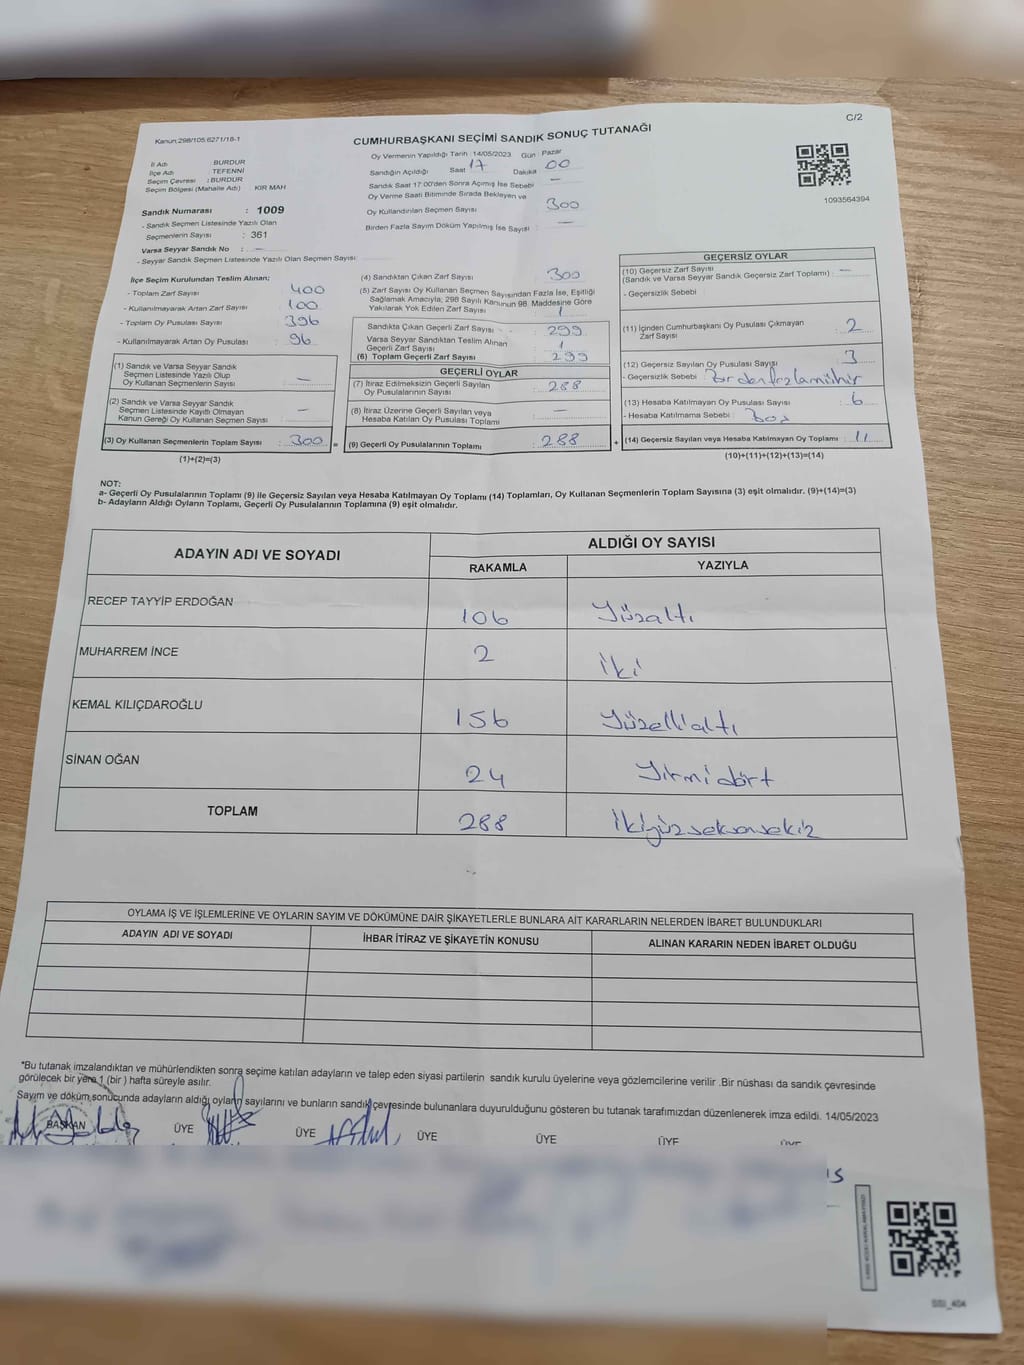 C/2
Kanun:298/105;6271/18-1
CUMHURBAŞKANI SEÇİMİ SANDIK SONUÇ TUTANAĞI
İl Adı : BURDUR
İlçe Adı : TEFENNİ
Seçim Çevresi : BURDUR
Seçim Bölgesi (Mahalle Adı) KIR MAH
Sandık Numarası : 1009
- Sandık Seçmen Listesinde Yazılı Olan
Seçmenlerin Sayısı : 361
Varsa Seyyar Sandık No : -
- Seyyar Sandık Seçmen Listesinde Yazılı Olan Seçmen Sayısı:
Oy Vermenin Yapıldığı Tarih :14/05/2023 Gün : Pazar
Sandığın Açıldığı Saat 17 Dakika 00
Sandık Saat 17:00'den Sonra Açımış İse Sebebi -
Oy Verme Saati Bitiminde Sırada Bekleyen ve
Oy Kullandırılan Seçmen Sayısı 300
Birden Fazla Sayım Döküm Yapılmış İse Sayısı : -
1093564394
İlçe Seçim Kurulundan Teslim Alınan;
- Toplam Zarf Sayısı : 400
- Kullanılmayarak Artan Zarf Sayısı : 100
- Toplam Oy Pusulası Sayısı : 396
- Kullanılmayarak Artan Oy Pusulası : 96
(1) Sandık ve Varsa Seyyar Sandık
Seçmen Listesinde Yazılı Olup
Oy Kullanan Seçmenlerin Sayısı : -
(2) Sandık ve Varsa Seyyar Sandık
Seçmen Listesinde Kayıtlı Olmayan
Kanun Gereği Oy Kullanan Seçmen Sayısı : -
(3) Oy Kullanan Seçmenlerin Toplam Sayısı : 300 =
(1)+(2)=(3)
(4) Sandıktan Çıkan Zarf Sayısı : 300
(5) Zarf Sayısı Oy Kullanan Seçmen Sayısından Fazla İse, Eşitliği
Sağlamak Amacıyla; 298 Sayılı Kanunun 98. Maddesine Göre
Yakılarak Yok Edilen Zarf Sayısı : 1
Sandıkta Çıkan Geçerli Zarf Sayısı : 299
Varsa Seyyar Sandıktan Teslim Alınan
Geçerli Zarf Sayısı : 1
(6) Toplam Geçerli Zarf Sayısı : 299
GEÇERLİ OYLAR
(7) İtiraz Edilmeksizin Geçerli Sayılan
Oy Pusulalarının Sayısı : 288
(8) İtiraz Üzerine Geçerli Sayılan veya
Hesaba Katılan Oy Pusulası Toplamı : -
(9) Geçerli Oy Pusulalarının Toplamı : 288 +
GEÇERSİZ OYLAR
(10) Geçersiz Zarf Sayısı
(Sandık ve Varsa Seyyar Sandık Geçersiz Zarf Toplamı) : -
- Geçersizlik Sebebi :
(11) İçinden Cumhurbaşkanı Oy Pusulası Çıkmayan
Zarf Sayısı : 2
(12) Geçersiz Sayılan Oy Pusulası Sayısı : 3
- Geçersizlik Sebebi : Birden fazla mühür
(13) Hesaba Katılmayan Oy Pusulası Sayısı : 6
- Hesaba Katılmama Sebebi : Boş
(14) Geçersiz Sayılan veya Hesaba Katılmayan Oy Toplamı : 11
(10)+(11)+(12)+(13)=(14)
NOT:
a- Geçerli Oy Pusulalarının Toplamı (9) ile Geçersiz Sayılan veya Hesaba Katılmayan Oy Toplamı (14) Toplamları, Oy Kullanan Seçmenlerin Toplam Sayısına (3) eşit olmalıdır. (9)+(14)=(3)
b- Adayların Aldığı Oyların Toplamı, Geçerli Oy Pusulalarının Toplamına (9) eşit olmalıdır.
ADAYIN ADI VE SOYADI ALDIĞI OY SAYISI
RAKAMLA YAZIYLA
RECEP TAYYİP ERDOĞAN 106 Yüzaltı
MUHARREM İNCE 2 İki
KEMAL KILIÇDAROĞLU 156 Yüzelli altı
SİNAN OĞAN 24 Yirmi dört
TOPLAM 288 İkiyüzseksensekiz
OYLAMA İŞ VE İŞLEMLERİNE VE OYLARIN SAYIM VE DÖKÜMÜNE DAİR ŞİKAYETLERLE BUNLARA AİT KARARLARIN NELERDEN İBARET BULUNDUKLARI
ADAYIN ADI VE SOYADI İHBAR İTİRAZ VE ŞİKAYETİN KONUSU ALINAN KARARIN NEDEN İBARET OLDUĞU
*Bu tutanak imzalandıktan ve mühürlendikten sonra seçime katılan adayların ve talep eden siyasi partilerin sandık kurulu üyelerine veya gözlemcilerine verilir .Bir nüshası da sandık çevresinde
görülecek bir yere 1 (bir ) hafta süreyle asılır.
Sayım ve döküm sonucunda adayların aldığı oyların sayılarını ve bunların sandık çevresinde bulunanlara duyurulduğunu gösteren bu tutanak tarafımızdan düzenlenerek imza edildi. 14/05/2023
BAŞKAN ÜYE ÜYE ÜYE ÜYE ÜYE ÜYE